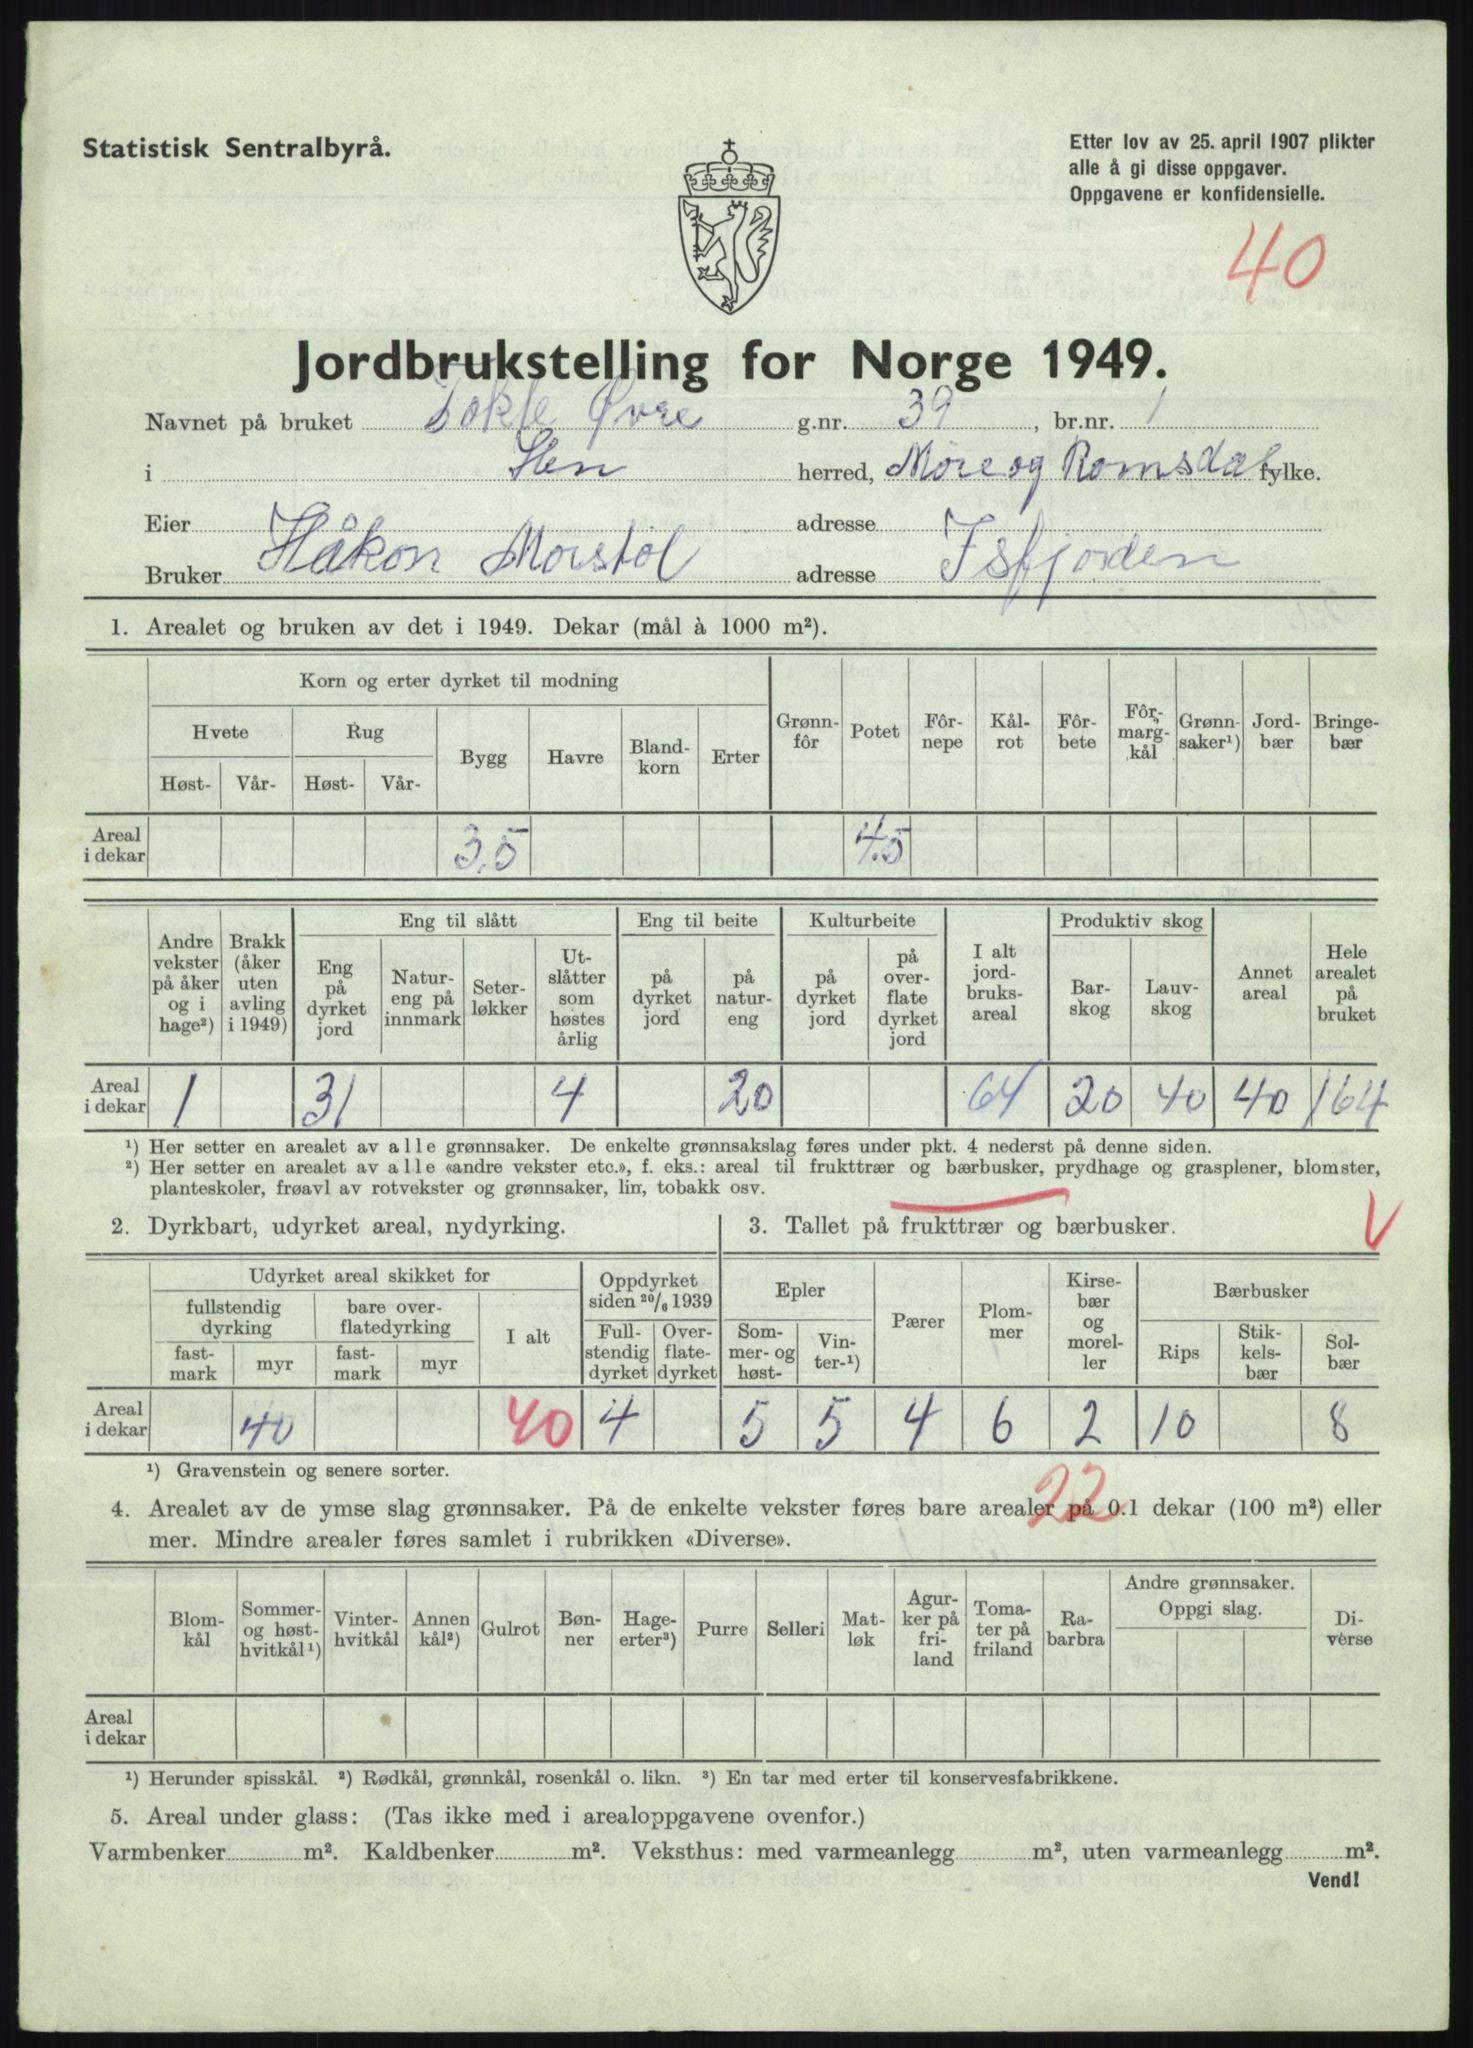 Statistisk Sentralbyrå.
Etter lov av 25. april 1907 plikter
alle å gi disse oppgaver.
Oppgavene er konfidensielle.
40
Jordbrukstelling for Norge 1949.
Navnet på bruket Tokle Øvre g.nr. 39, br.nr. 1
i Hen herred, Møre og Romsdal fylke.
Eier adresse
Bruker Håkon Morstøl adresse Isfjorden
1. Arealet og bruken av det i 1949. Dekar (mål à 1000 m²).
Korn og erter dyrket til modning
Hvete Rug Bygg Havre Bland-korn Erter Grønn-fôr Potet Fôr-nepe Kål-rot Fôr-bete Fôr-marg-kål Grønn-saker¹) Jord-bær Bringe-bær
Høst- Vår- Høst- Vår-
Areal i dekar 3,5 4.5
Eng til slått Eng til beite Kulturbeite Produktiv skog
Andre vekster på åker og i hage²) Brakk (åker uten avling i 1949) Eng på dyrket jord Natur-eng på innmark Seter-løkker Ut-slåtter som høstes årlig på dyrket jord på natur-eng på dyrket jord på over-flate dyrket jord I alt jord-bruks-areal Bar-skog Lauv-skog Annet areal Hele arealet på bruket
Areal i dekar 1 31 4 20 64 20 40 40 164
¹) Her setter en arealet av alle grønnsaker. De enkelte grønnsakslag føres under pkt. 4 nederst på denne siden.
²) Her setter en arealet av alle «andre vekster etc.», f. eks.: areal til frukttrær og bærbusker, prydhage og grasplener, blomster,
planteskoler, frøavl av rotvekster og grønnsaker, lin, tobakk osv.
2. Dyrkbart, udyrket areal, nydyrking.
3. Tallet på frukttrær og bærbusker.
Udyrket areal skikket for Oppdyrket siden 20/6 1939 Epler Pærer Plom-mer Kirse-bær og morel-ler Bærbusker
fullstendig dyrking bare over-flatedyrking I alt Full-stendig dyrket Over-flate-dyrket Som-mer- og høst- Vin-ter-¹) Rips Stik-kels-bær Sol-bær
fast-mark myr fast-mark myr
Areal i dekar 40 40 4 5 5 4 6 2 10 8
¹) Gravenstein og senere sorter.
22
4. Arealet av de ymse slag grønnsaker. På de enkelte vekster føres bare arealer på 0.1 dekar (100 m²) eller
mer. Mindre arealer føres samlet i rubrikken «Diverse».
Blom-kål Sommer- og høst-hvitkål¹) Vinter-hvitkål Annen kål²) Gulrot Bøn-ner Hage-erter³) Purre Selleri Mat-løk Agur-ker på fri-land Toma-ter på friland Ra-barbra Andre grønnsaker. Oppgi slag. Di-verse
Areal i dekar
¹) Herunder spisskål. ²) Rødkål, grønnkål, rosenkål o. likn. ³) En tar med erter til konservesfabrikkene.
5. Areal under glass: (Tas ikke med i arealoppgavene ovenfor.)
Varmbenker m². Kaldbenker m². Veksthus: med varmeanlegg m², uten varmeanlegg m².
Vend!